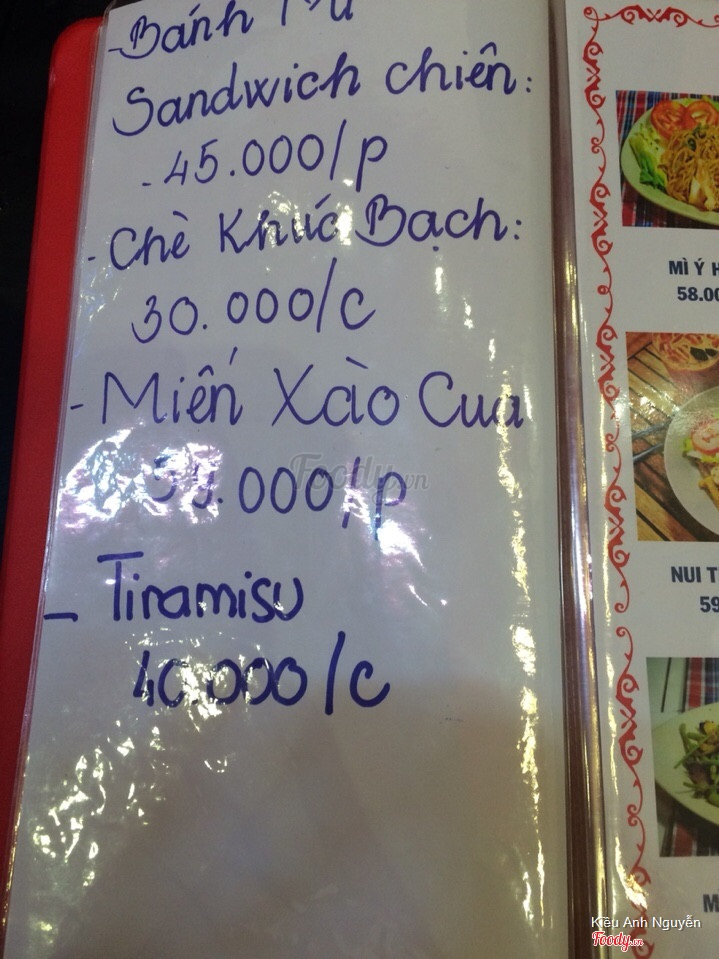 -Bánh Mì
Sandwich chiên:
-45.000/p
-Chè Khúc Bạch:
30.000/c
-Miến Xào Cua
.000/p
- Tiramisu
40.000/c
MÌ Ý H
58.00
NUI T
59
M
Foody.vn
Kiều Anh Nguyễn
Foody.vn